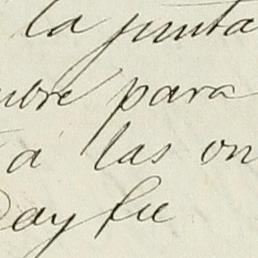 la junta
mbre para
a las on
Day fe